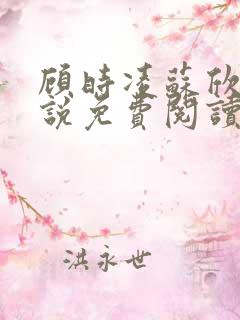 顾时凌蘇欣
說免費閱讀
洪永世